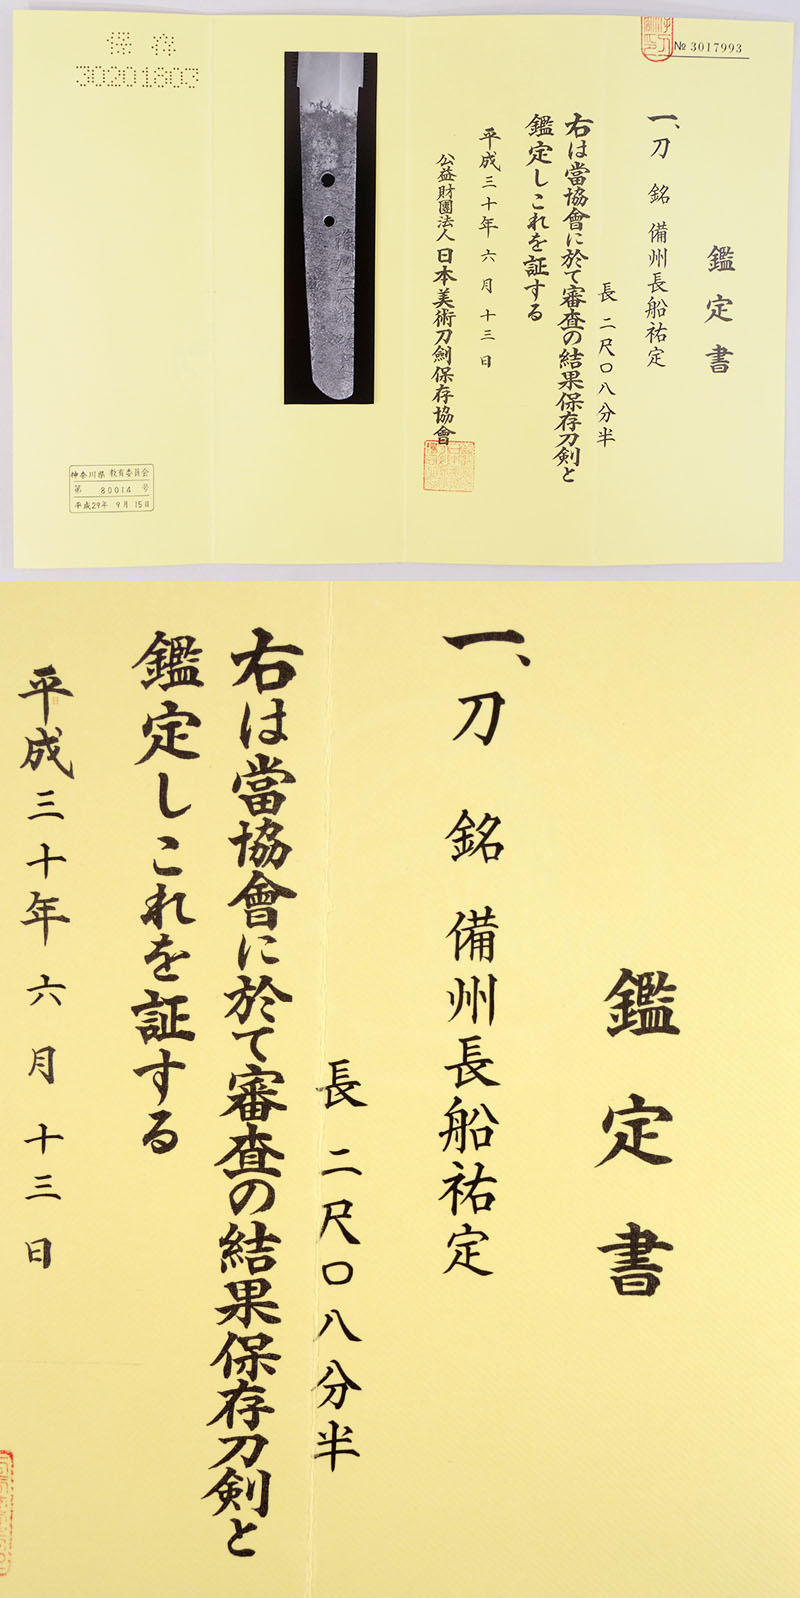 № 3017993
鑑定書
一、刀 銘 備州長船祐定
長 二尺〇八分半
右は當協會に於て審査の結果保存刀剣と
鑑定しこれを証する
平成三十年六月十三日
公益財團法人 日本美術刀劍保存協會
保存
30201803
神奈川県教育委員会
第 80014 号
平成29年 9月 15日
鑑定書
一、刀 銘 備州長船祐定
長 二尺〇八分半
右は當協會に於て審査の結果保存刀剣と
鑑定しこれを証する
平成三十年六月十三日